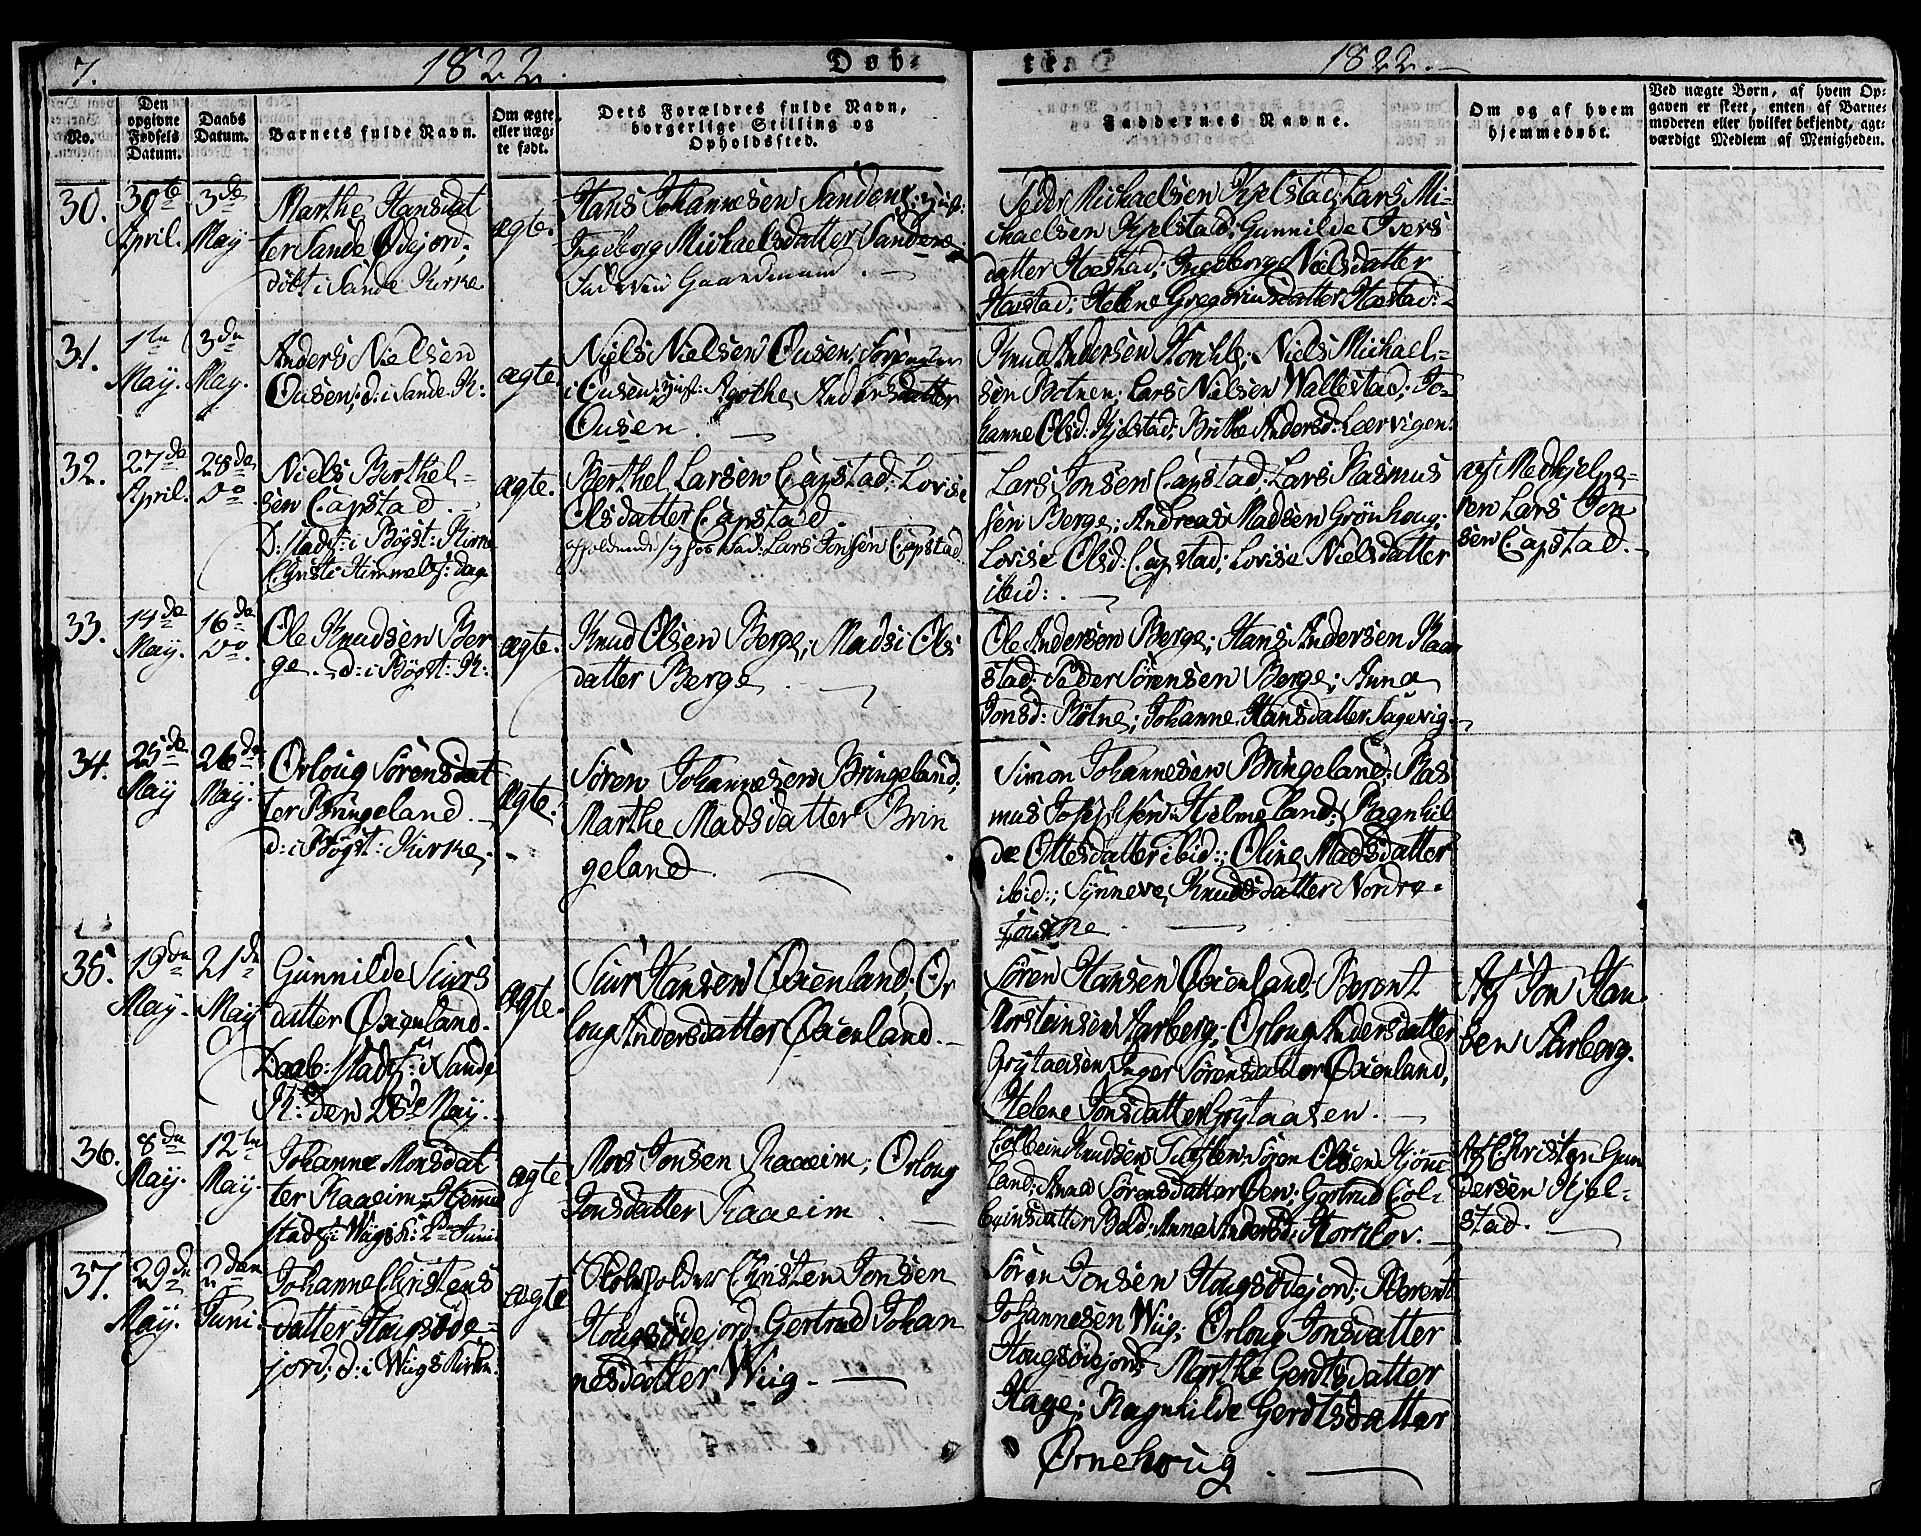 7.
1822.
Døb-
te.
1822.
No.
Den
opgivne
Fødsels
Datum.
Daabs
Datum.
Barnets fulde Navn.
Om ægte
eller uæg-
te født.
Dets Forældres fulde Navn,
borgerlige Stilling og
Opholdssted.
Faddernes Navne.
Om og af hvem
hjemmedøbt.
Ved uægte Børn, af hvem Op-
gaven er skeet, enten af Barne-
moderen eller hvilket bekjendt, agt-
værdigt Medlem af Menigheden.
30.
30te
April.
3de
May
Marthe Hansdat
ter Sande Ødejord;
döbt i Sande Kirke
ægte.
Hans Johannesen Sandens
Ingeborg Michaelsdatter Sandens
Gaardmand.
Peder Michaelsen Kjelstad; Lars Mi-
chaelsen Kjelstad; Gunnilde Ivers
datter Hæstad; Ingeborg Nielsdatter
Hæstad; Helene Gregoriusdatter Hæstad.
31.
1te
May.
3die
May.
Anders Nielsen
Ousen; d: i Sande K:
ægte.
Niels Nielsen Ousen,
i Ousen; Agothe Andersdatter
Ousen.
Knud Andersen Horkle; Niels Michael-
sen Botnen; Lars Nielsen Wallestad; Jo-
hanne Olsd: Kjelstad; Brithe Andersd: Leervigen.
32.
27de
April.
28de
Do
Niels Berthel-
sen Capstad.
D: stadf: i Bögst: Kirke
Christi Himmelf: dag.
ægte.
Berthel Larsen Capstad; Lovise
Olsdatter Capstad.
opholdende sig hos Lars Jonsen Capstad
Lars Jonsen Capstad; Lars Rasmus
sen Berge; Andreas Madsen Grönhoug;
Lovise Olsd: Capstad; Lovise Nielsdatter
ibid:.
af Medhjelpe-
ren Lars Jon
sen Capstad.
33.
14de
May.
16de
Do.
Ole Knudsen Ber
ge. d: i Bögst: K:
ægte.
Knud Olsen Berge; Madsi Ols
datter Berge
Ole Andersen Berge; Hans Andersen Raa
stad; Peder Sörensen Berge; Anna
Jonsd: Bötne; Johanne Hansdatter Sagevig.
34.
25de
May
26de
May.
Orloug Sörensdat
ter Bringeland.
d: i Bögst: Kirke.
ægte.
Sören Johannesen Bringeland;
Marthe Madsdatter Brin
geland.
Simon Johannesen Bringeland; Ras
mus Josephsen Hjelmeland; Ragnhil
de Ottesdatter ibid:; Oline Madsdatter
ibid:; Synneve Knudsdatter Nordre-
35.
19de
May.
21de
May
Gunnilde Siurs
datter Øxenland.
Daab: stadf: i Sande
K: den 28de May.
ægte.
Siur Hansen Øxenland; Or
loug Andersdatter Øxenland.
Sören Hansen Øxenland; Berent
Torsteinsen Aarberg; Orloug Andersdatter
Grytaasen; Inger Sörensdatter Øxenland,
Helene Jonsdatter Grytaasen.
Af Jon Han
sen Aarberg.
36.
8de
May.
12te
May.
Johanne Monsdat
ter Kaaeim;
stadf: i Wiigs K: 2den Juni
ægte
Mons Jonsen Kaaeim; Orloug
Jonsdatter Kaaeim.
Colbein Knudsen Sören Olsen
land; Anna Sörensdatter Gertrud Col-
beinsdatter Anna Andersd:
Af Christen Gun
dersen Kjel-
stad.
37.
29de
May.
2den
Juni.
Johanne Christens
datter Hougsöde-
jord; d: i Wiigs Kirke.
ægte
Christen Jonsen
Hougsödejord; Gertrud Johan
nesdatter Wiig.
Sören Jonsen Hougsödejord; Berent
Johannesen Wiig; Orloug Jonsdatter
Hougsödejord; Marthe Gerdtsdatter
Hage; Ragnhilde Gerdtsdatter
Ørnehoug.